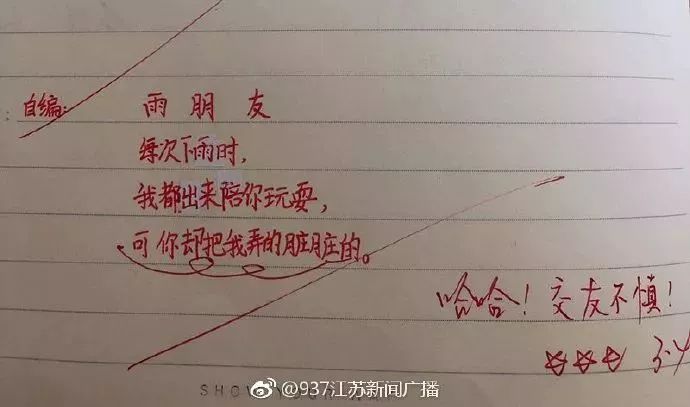 自编:
雨朋友
每次下雨时,
我都出来陪你玩耍,
可你却把我弄的脏脏的。
哈哈！交友不慎！
☆☆☆ 3.4
SHOW
@937江苏新闻广播